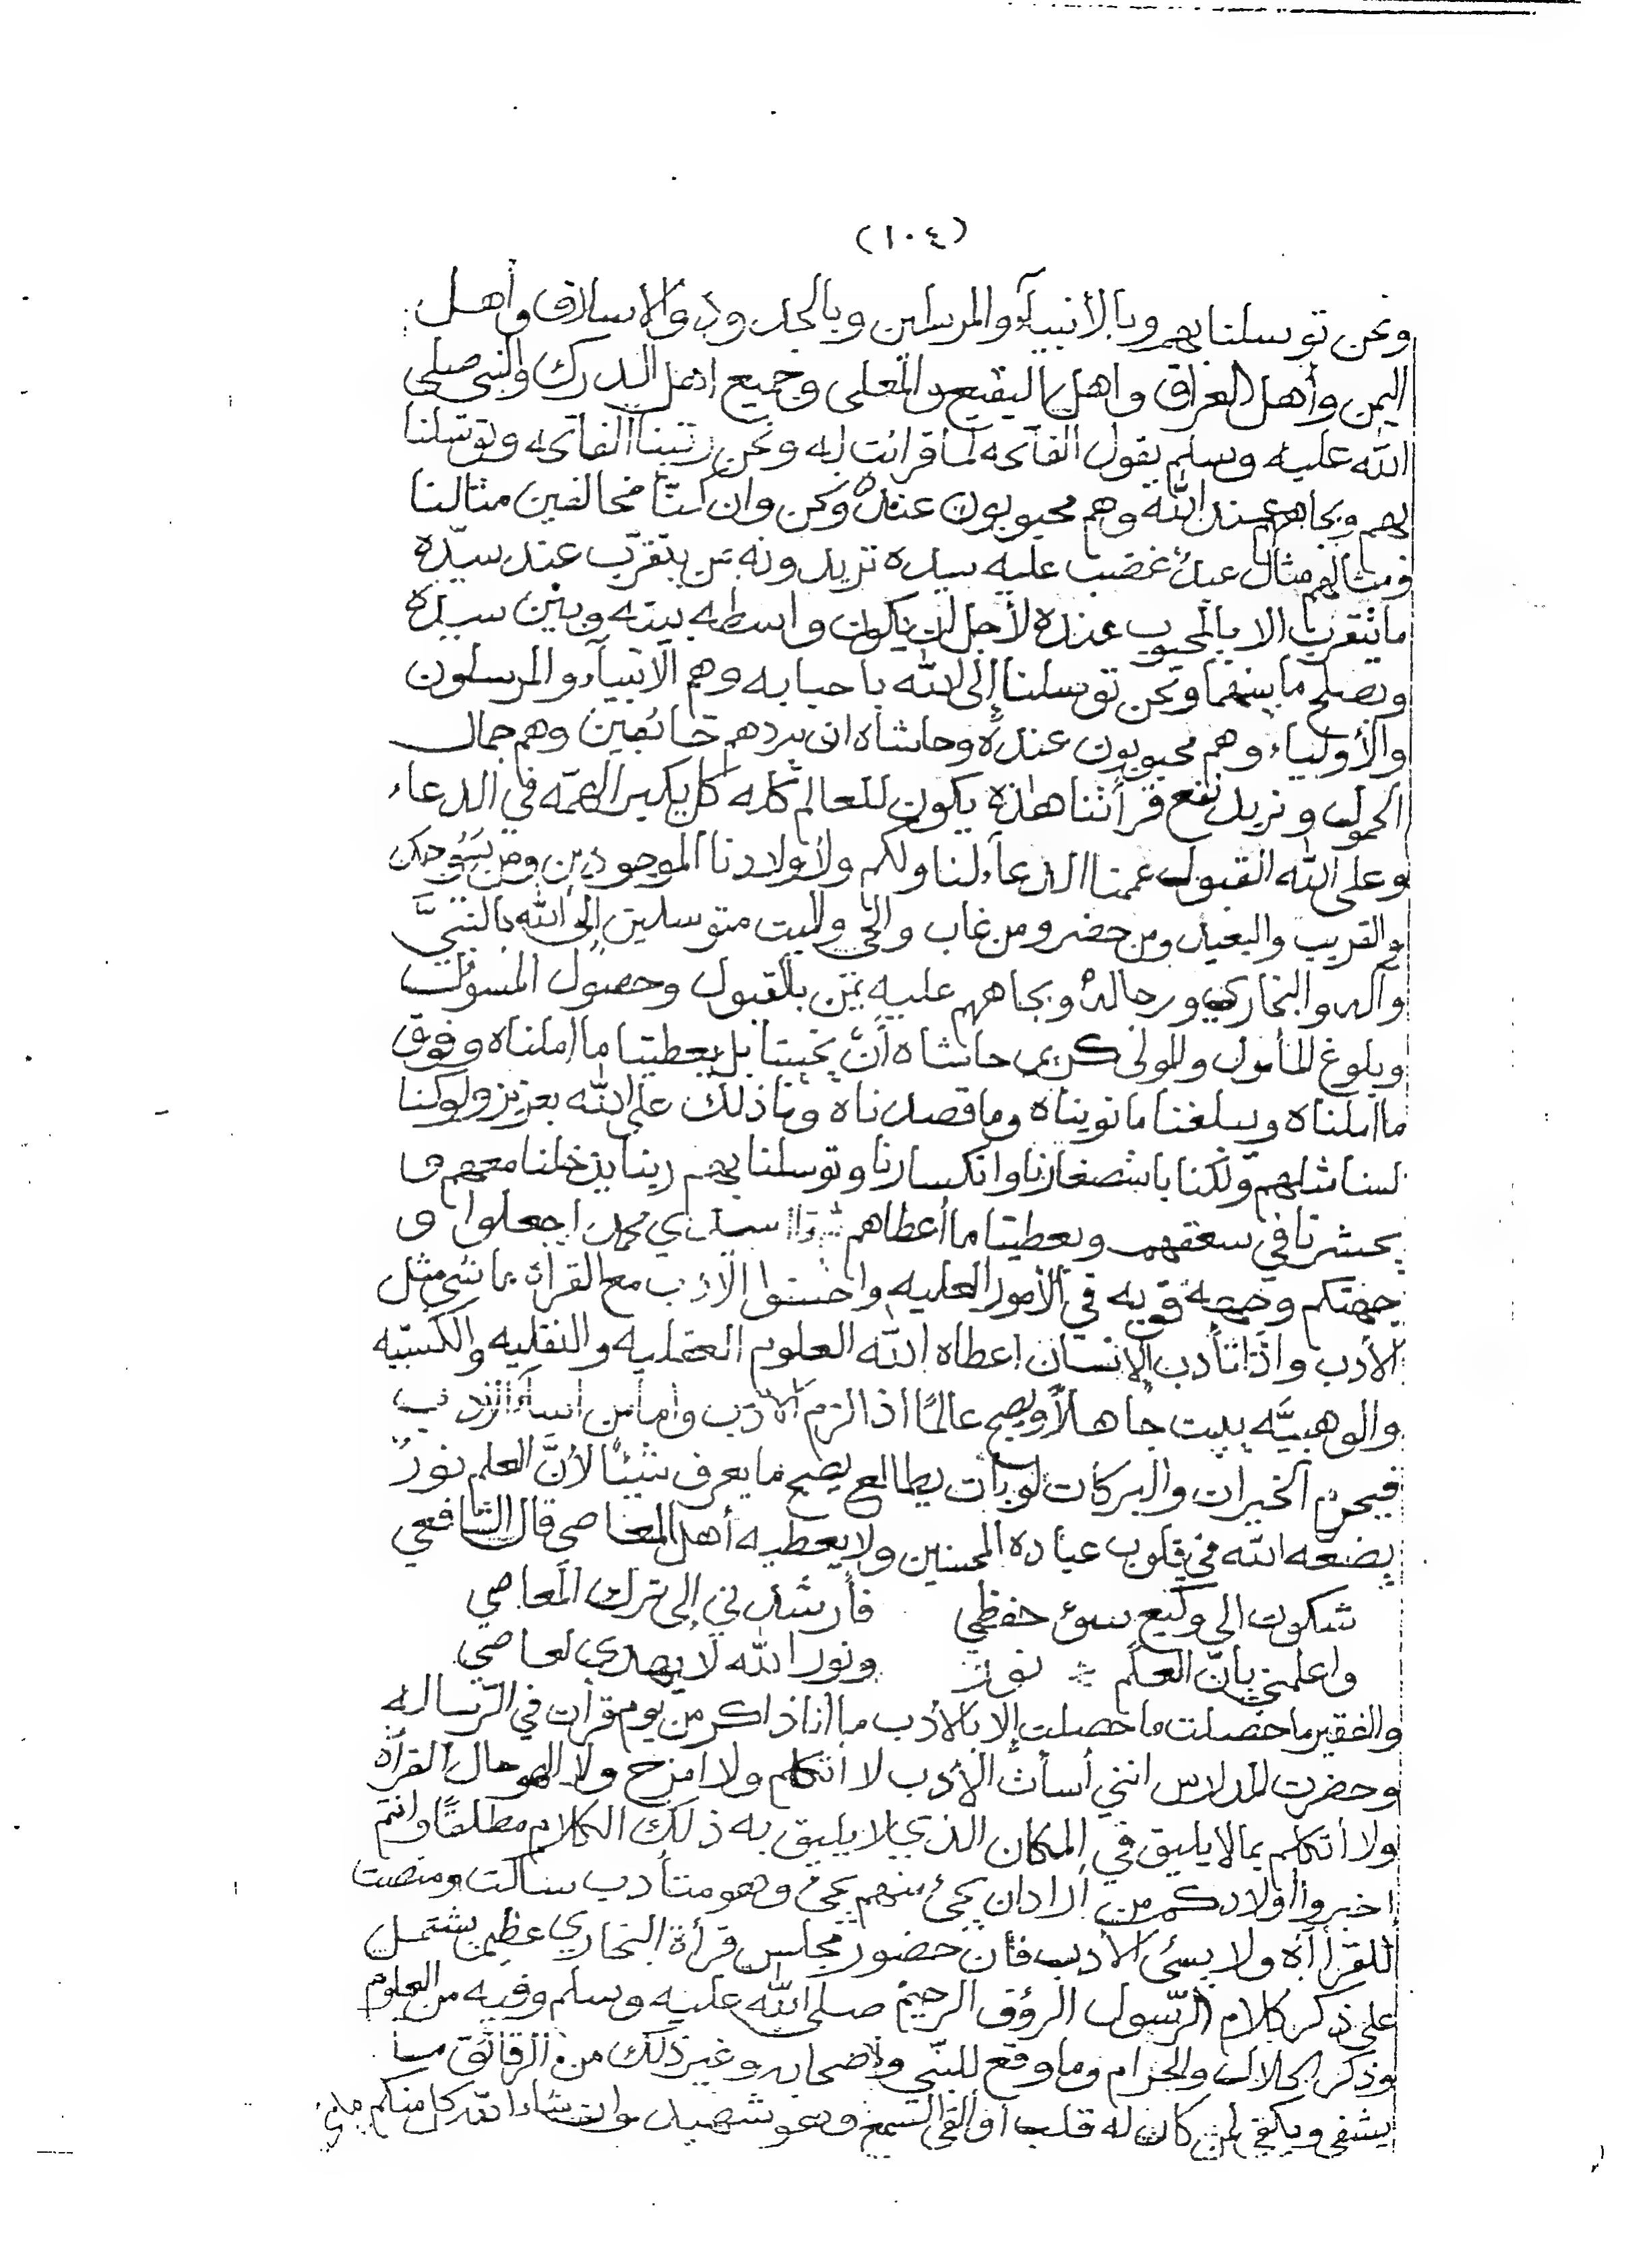 (١٠٤)
ونحن توسلنا بهم وبالأنبيآء والمرسلين وبالجدود والاسلاف وأهل
اليمن وأهل العراق واهل البقيع والمعلى وجميع اهل الدرك والنبي صلى
الله عليه وسلم يقول الفاتحه لما قرائت له ونحن رتبنا الفاتحه وتوسلنا
بهم وبجاههم عند الله وهم محبوبون عنده ونحن وان كنّا مخالفين مثالنا
ومثالهم مثال عبدٌ غضب عليه سيده تريدونه من يتقرّب عند سيّده
ما يتقرب الا بالمحبوب عنده لأجل ان يكون واسطه بينه وبين سيده
ويصلح ما بينهما ونحن توسلنا إلى الله باحبابه وهم الانبيآء والمرسلون
والأولياء وهم محبوبون عنده وحاشاه ان يردهم خائبين وهم جمال
الحمول ونريد نفع قرأتنا هاذه يكون للعالم كله كل يكبر الهمّه في الدعاء
وعلى الله القبول عممنا الدعآء لنا ولكم ولأولادنا الموجودين ومن سيوجدون
والقريب والبعيد ومن حضر ومن غاب والحي والميت متوسلين إلى الله بالنبيّ
وآله والبخاري ورجاله وبجاههم عليه يمن بالقبول وحصول المسؤل
وبلوغ المأمول والمولى كريم حاشاه أن يخيبنا بل يعطينا ما املناه وفوق
ما املناه ويبلغنا ما نويناه وما قصدناه وما ذلك على الله بعزيز ولو كنا
لسنا مثلهم ولكنا باستصغارنا وانكسارنا وتوسلنا بهم ربنا يدخلنا معهم و
يحشرنا في سعفهم ويعطينا ما أعطاهم سيدي محمد اجعلوا و
جهتكم وجهة قويه في الأمور العليه واحسنوا الأدب مع القرأة ما شي مثل
الأدب واذا تأدب الإنسان اعطاه الله العلوم العقليه والنقليه والكسبيه
والوهبيَّه يبيت جاهلاً ويصبح عالمًا اذا الزم الأدب وأما من اسآء الأدب
فيحرم الخيرات والبركات لو بات يطالع يصبح ما يعرف شيئًا لأنَّ العلم نورٌ
يضعه الله في قلوب عباده المحسنين ولا يعطيه أهل المعاصي قال الشافعي
شكوت الى وكيع سوء حفظي فأرشدني إلى ترك المعاصي
واعلمني بانّ العلم نورٌ ونور الله لا يهدى لعاصي
والفقير ما حصلت ما حصلت إلا بالأدب ما أنا ذاكر من يوم قرأت في الرّساله
وحضرت المدارس انني أسأت الأدب لا أتكلم ولا امزح ولا الهو حال القرأة
ولا أتكلم بما لا يليق في المكان الذي لا يليق به ذلك الكلام مطلقًا وانتم
اخبروا أولادكم من أراد ان يجيء منهم يجيء وهو متأدب ساكت ومنصت
للقرأة ولا يسيء الأدب فان حضور مجلس قرأة البخاري عظيم يشتمل
على ذكر كلام الرّسول الرؤف الرحيم صلى الله عليه وسلم وفيه من العلوم
وذكر الحلال والحرام وما وقع للنبي وأصحابه وغير ذلك من الرقائق ما
يشفي ويكفي لمن كان له قلب أو ألقى السمع وهو شهيد وان شاء الله كل منكم